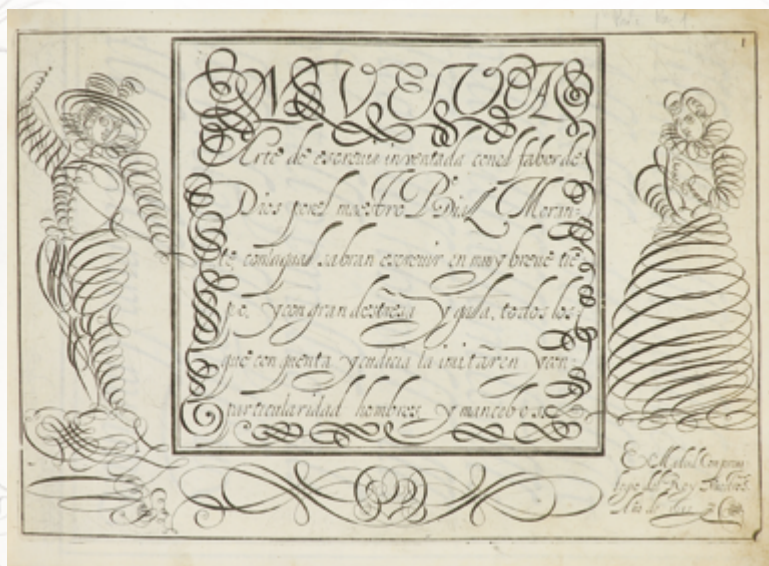 NUEVA
Arte de escreuir inventada con el fabor de
Dios por el maestro Po Diaz Moran-
te, con la qual sabran escreuir en muy breue tie
po, y con gran destreça y gala, todos los
que con quenta y cudicia la imitaren y con
particularidad hombres y mancebos
En Madrid Con preui
legio del Rey
Año de
1